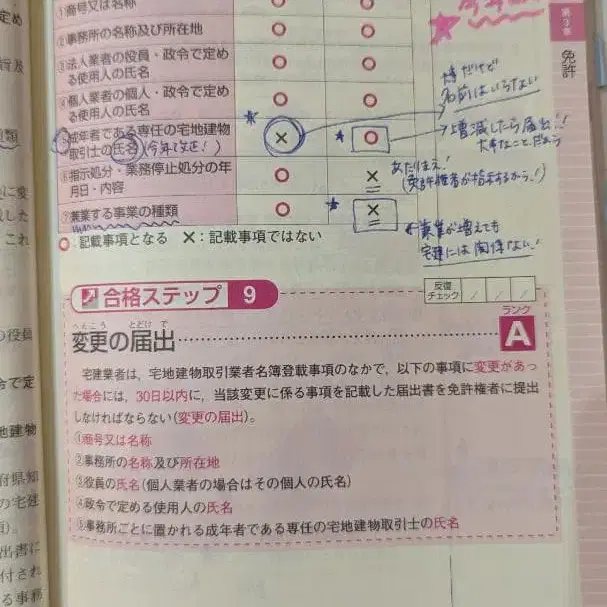 ①商号又は名称
②事務所の名称及び所在地
③法人業者の役員・政令で定め
る使用人の氏名
④個人業者の個人・政令で定め
る使用人の氏名
⑤成年者である専任の宅地建物
取引士の氏名
⑥指示処分・業務停止処分の年
月日・内容
⑦兼業する事業の種類
○ ○
○ ○
○ ○
○ ○
× ○
○ ×
○ ×
○:記載事項となる ×:記載事項ではない
名前はいらない
増減したら届出!!
あたりまえ!
兼業が増えても
宅建には関係ない!
第3章
免許
合格ステップ 9
反復
チェック
ランク
A
へんこう とどけ で
変更の届出
宅建業者は、宅地建物取引業者名簿登載事項のなかで、以下の事項に変更があっ
た場合には、30日以内に、当該変更に係る事項を記載した届出書を免許権者に提出
しなければならない(変更の届出)。
①商号又は名称
②事務所の名称及び所在地
③役員の氏名(個人業者の場合はその個人の氏名)
④政令で定める使用人の氏名
⑤事務所ごとに置かれる成年者である専任の宅地建物取引士の氏名